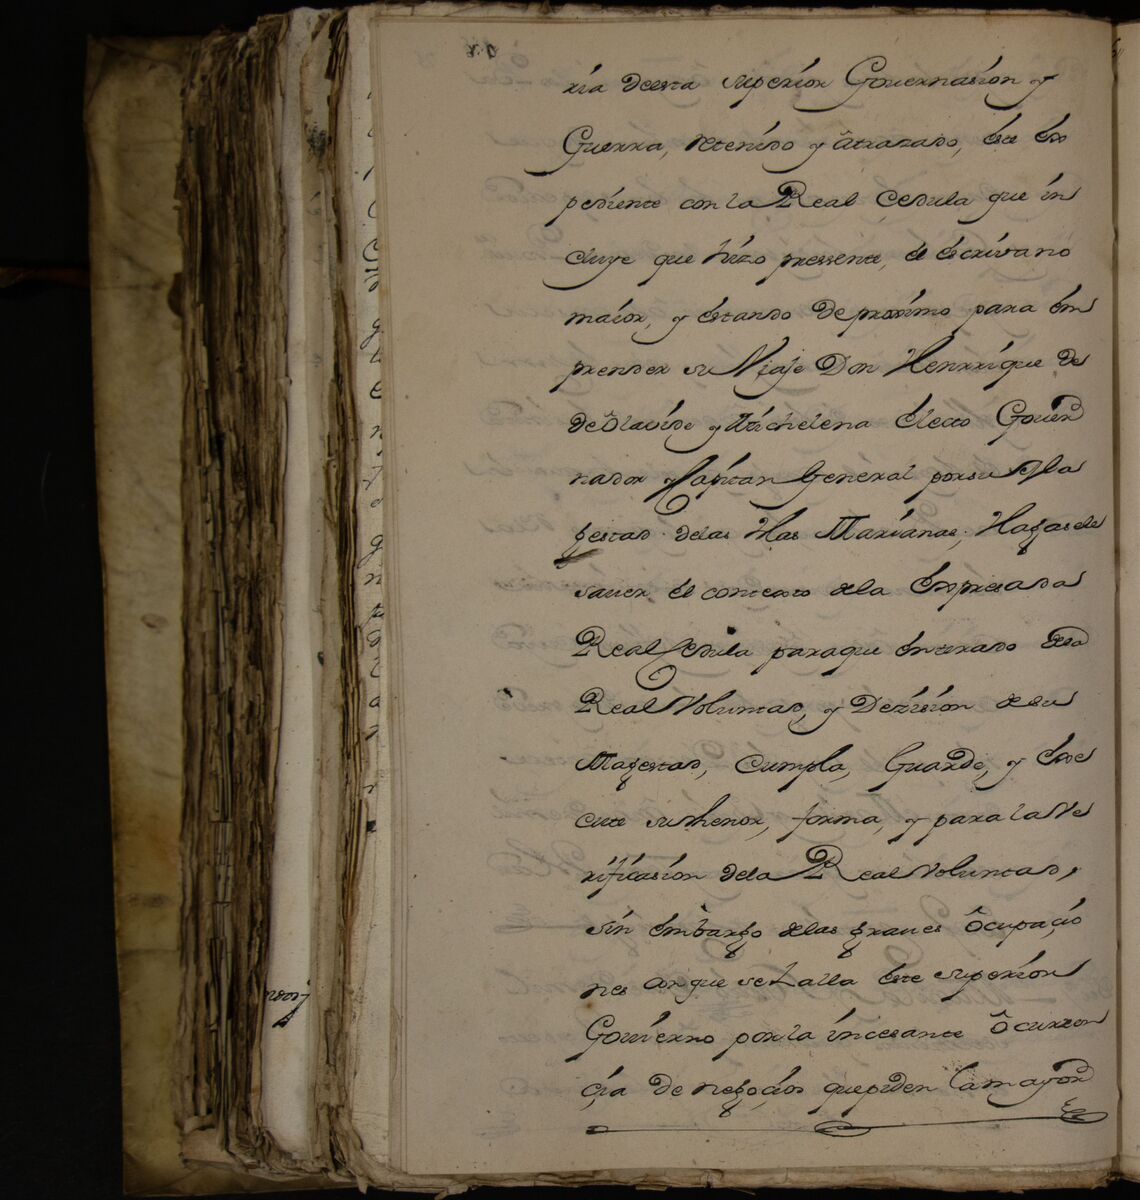 ria deesta superior Gouernasion y
Guerra, retenido y atrazado, este ex
pediente con la Real Cedula que in
cluye que hizo pressente, el escrivano
maior, y estando de proximo para em
prender su Viaje Don Henrrique de
de Olavide y Michelena Electo Gouer
nador y Capitan General por su Ma
gestad delas Yslas Marianas, Hagasele
sauer el contexto dela Expresada
Real Cedula paraque enterado dela
Real Voluntad, y Dezision de su
Magestad, Cumpla, Guarde, y exe
cute su thenor, forma, y para la Ve
rificasion dela Real Voluntad,
sin embargo delas graues ocupacio
nes en que se halla este superior
Gouierno por la incesante ocurren
cia de negocios que piden la mayor